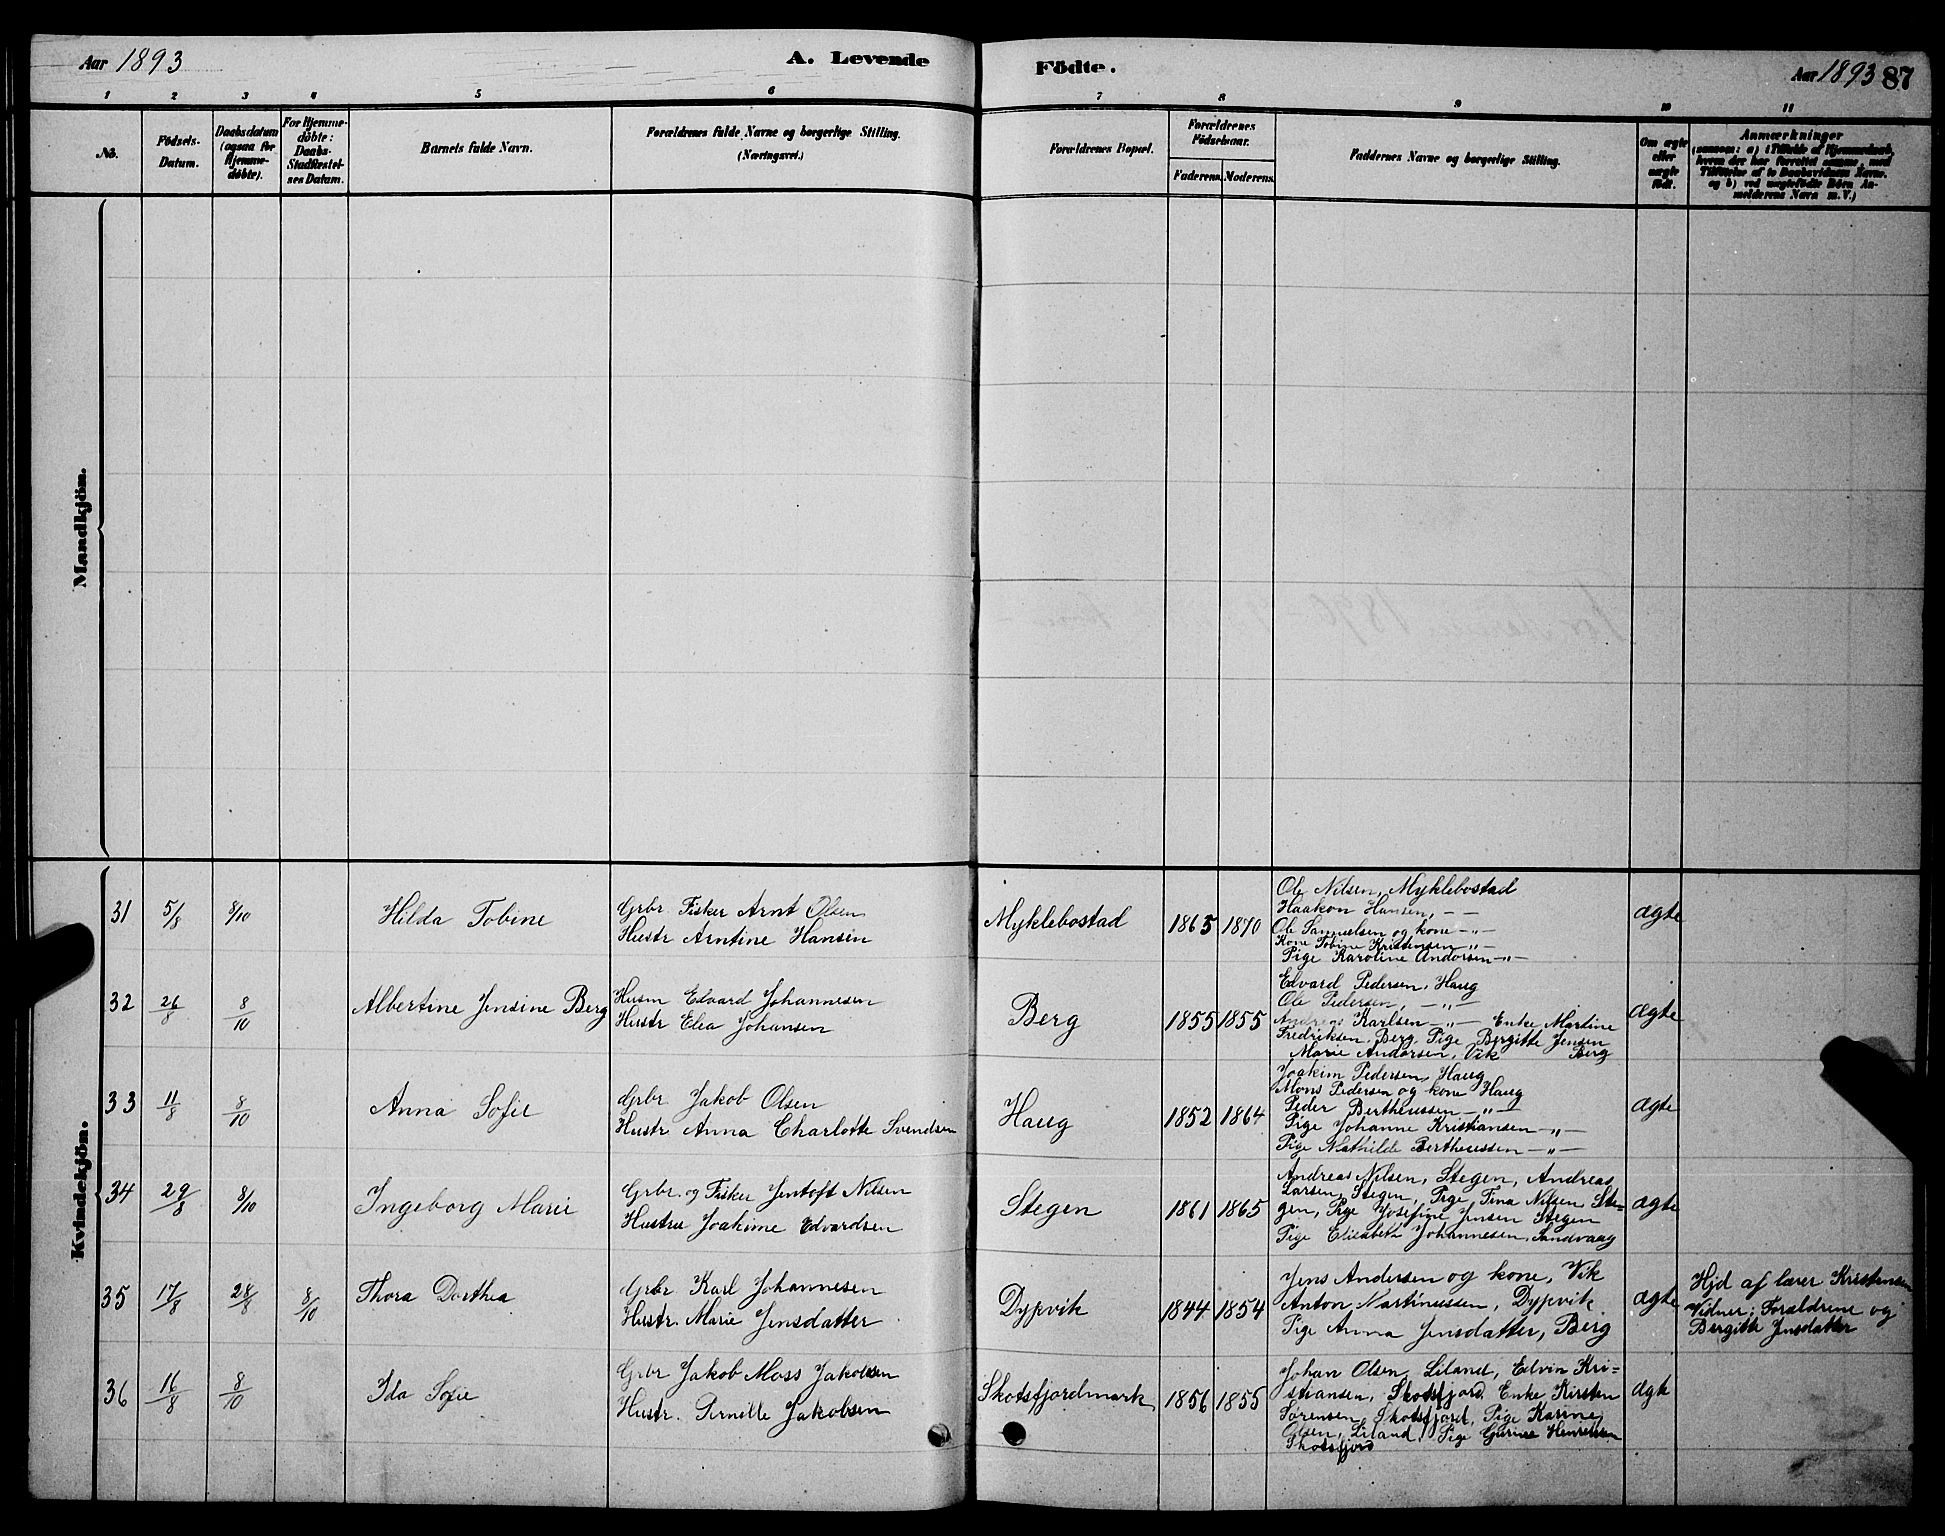 Aar 1893
A. Levende Födte.
Aar 1893 87
1 2 3 4 5 6 7 8 9 10 11
No.
Födsels-Datum.
Daabsdatum (ogsaa for Hjemme-döbte).
For Hjemme-döbte: Daabs-Stadfæstel-ses Datum.
Barnets fulde Navn.
Forældrenes fulde Navne og borgerlige Stilling.
(Næringsvei.)
Forældrenes Bopæl.
Forældrenes Födselsaar.
Faderens. Moderens.
Faddernes Navne og borgerlige Stilling.
Om ægte eller uægte födt.
Anmærkninger
(saasom: a) i Tilfælde af Hjemmedaab, hvem der har forrettet samme, med Tilföielse af to Daabsvidners Navne, og b) ved uægtefödte Börn An-melderens Navn m.V.)
Mandkjön.
Kvindekjön.
31 5/8 8/10 Hilda Tobine
Grbr. Fisker Arnt Olsen
Hustr Arntine Hansen
Myklebostad 1865 1870
Ole Nilsen, Myklebostad
Haakon Hansen, — —
Ole Samuelsen og kone —„—
Kone Tobine Kristensen —„—
Pige Karoline Andorsen —„—
ægte
32 26/8 8/10 Albertine Jensine Berg
Husm Edvard Johannesen
Hustr Elea Johansen
Berg 1855 1855
Edvard Pedersen, Haug
Ole Pedersen, —„—
Andreas Karlsen —„— Enke Martine
Fredriksen, Berg, Pige Bergitte Jensen
Marie Andorsen, Vik Berg
ægte
33 11/8 8/10 Anna Sofie
Grbr Jakob Olsen
Hustr Anna Charlotte Svendsen
Haug 1852 1864
Joakim Pedersen, Haug
Mons Pedersen og kone Haug
Peder Bertheussen —„—
Pige Johanne Kristiansen —„—
Pige Mathilde Bertheussen —„—
ægte
34 29/8 8/10 Ingeborg Marie
Grbr. og Fisker Jentoft Nilsen
Hustru Joakime Edvardsen
Stegen 1861 1865
Andreas Nilsen, Stegen, Andreas
Larsen, Stegen, Pige, Tina Nilsen Ste-
gen, Pige Josefine Jensen Stegen
Pige Elisabeth Johannesen, Sandvaag
ægte
35 17/8 28/8 8/10 Thora Dorthea
Grbr Karl Johannesen
Hustr. Marie Jensdatter
Dypvik 1844 1854
Jens Andersen og kone, Vik
Anton Martinussen, Dypvik
Pige Anna Jensdatter, Berg
ægte
Hjd af lærer Kristensen
Vidner: Forældrene og
Bergitte Jensdatter
36 16/8 8/10 Ida Sofie
Grbr Jakob Moss Jakobsen
Hustr. Pernille Jakobsen
Skotsfjordmark 1856 1855
Johan Olsen, Liland, Edvin Kri-
stiansen, Skotsfjord Enke Kirsten
Sørensen, Skotsfjord, Pige Karine
Olsen, Liland, Pige Gurine Henriksen
Skotsfjord
ægte